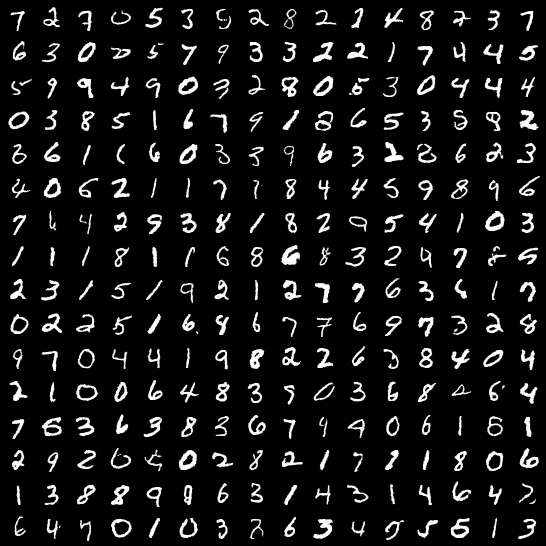 7 2 7 0 5 3 9 2 8 2 2 4 8 2 3 7
6 3 0 2 5 7 9 3 3 2 2 1 7 4 4 5
5 9 9 4 9 0 3 2 8 0 5 3 0 4 4 4
0 3 8 5 1 6 7 9 1 8 6 5 3 8 8 2
3 6 1 6 0 3 3 9 6 3 2 8 6 2 3
4 0 6 2 1 1 7 7 8 4 4 5 9 8 9 6
7 6 4 2 9 3 8 1 8 2 9 5 4 1 0 3
1 1 1 8 1 1 6 8 6 8 3 2 9 7 8 5
2 3 1 5 1 9 2 1 2 7 7 6 3 6 1 7
0 2 2 5 1 6 8 6 7 7 6 9 7 3 2 8
9 7 0 4 4 1 9 8 2 2 6 3 8 4 0 4
2 1 0 0 6 4 8 3 9 0 3 6 8 6 4
7 5 3 6 3 8 3 6 7 9 4 0 6 1 8 1
2 9 2 0 0 2 8 2 1 7 1 1 8 0 6
1 3 8 8 9 9 6 3 1 4 3 1 4 6 4 2
6 4 7 0 1 0 3 2 6 3 4 9 5 5 1 3